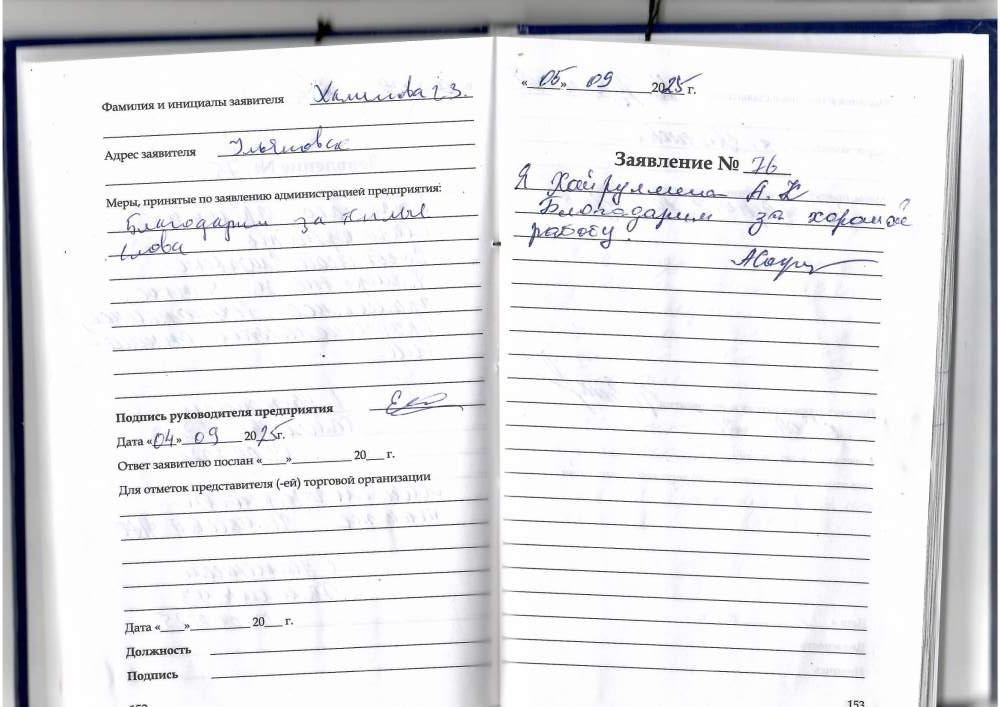 Фамилия и инициалы заявителя Халилова г.З.
Адрес заявителя Ульяновск
Меры, принятые по заявлению администрацией предприятия:
Благодарим за тёплые
слова
Подпись руководителя предприятия
Дата «04» 09 2025г.
Ответ заявителю послан «___»__________ 20___ г.
Для отметок представителя (-ей) торговой организации
Дата «___»__________ 20___ г.
Должность
Подпись
152
«05» 09 2025 г.
Заявление № 76
Я Хайруллина А.К
Благодарим за хорошую
работу.
153